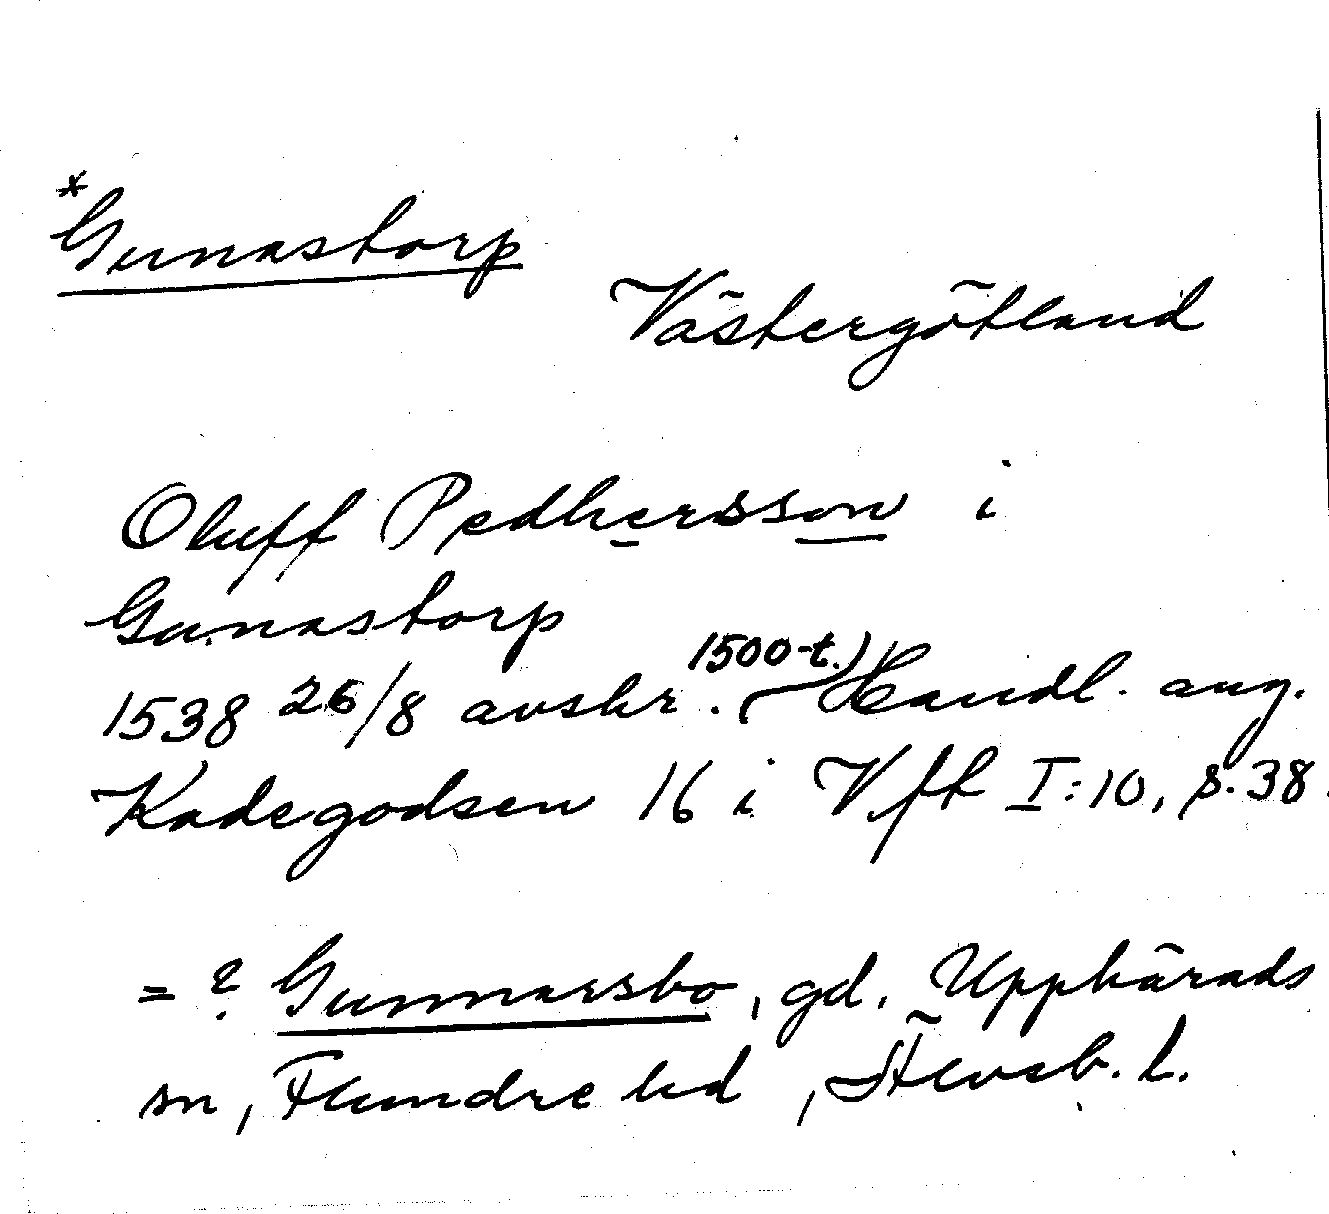 *Gunastorp
Västergötland
Oluff Pedhersson i
Gunastorp
1538 26/8 avskr. (1500-t.) Handl. ang.
Kadegodsen 16 i Vfk I:10, s. 38.
= ? Gunnarsbo, gd, Upphärads
sn, Flundre hd, Älvsb. l.